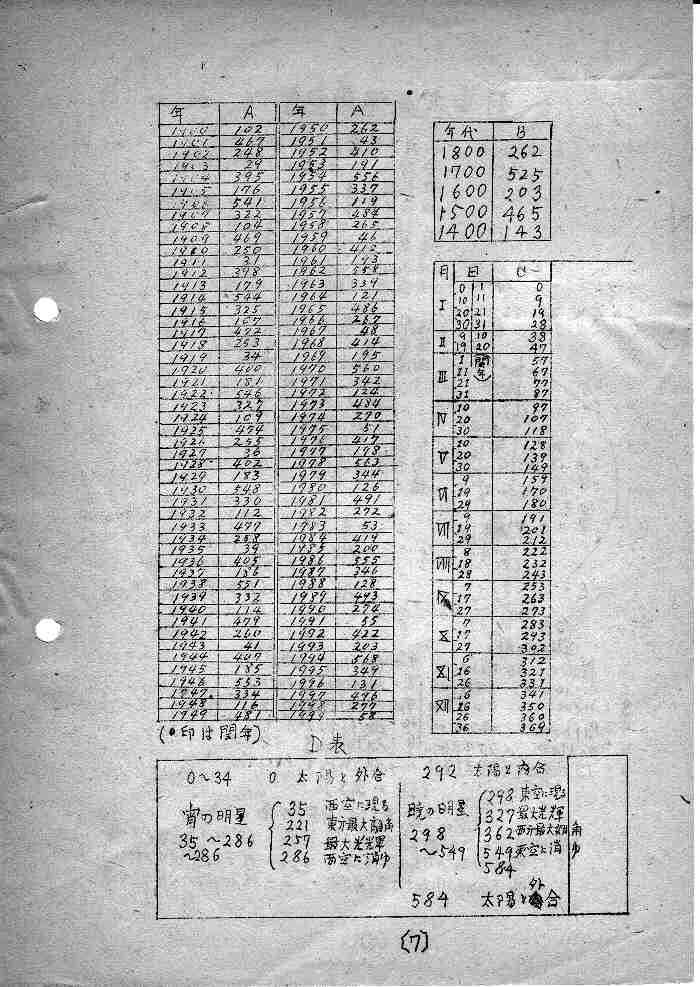 年 A 年 A
1900 102 1950 262
1901 467 1951 43
1902 248 1952 410
1903 29 1953 191
1904 395 1954 556
1905 176 1955 337
1906 541 1956 119
1907 322 1957 484
1908 104 1958 265
1909 469 1959 46
1910 250 1960 412
1911 31 1961 193
1912 398 1962 558
1913 179 1963 339
1914 544 1964 121
1915 325 1965 486
1916 107 1966 267
1917 472 1967 48
1918 253 1968 414
1919 34 1969 195
1920 400 1970 560
1921 181 1971 342
1922 546 1972 124
1923 327 1973 484
1924 109 1974 270
1925 474 1975 51
1926 255 1976 417
1927 36 1977 198
1928 402 1978 563
1929 183 1979 344
1930 548 1980 126
1931 330 1981 491
1932 112 1982 272
1933 477 1983 53
1934 258 1984 419
1935 39 1985 200
1936 405 1986 555
1937 186 1987 346
1938 551 1988 128
1939 332 1989 493
1940 114 1990 274
1941 479 1991 55
1942 260 1992 422
1943 41 1993 203
1944 407 1994 568
1945 185 1995 349
1946 553 1996 131
1947 334 1997 496
1948 116 1998 277
1949 481 1999 58
(•印は閏年)
年代 B
1800 262
1700 525
1600 203
1500 465
1400 143
月 日 C
I 0 1 0
10 11 9
20 21 19
30 31 28
II 9 10 38
19 20 47
III 1 閏年 57
11 67
21 77
31 87
IV 10 97
20 107
30 118
V 10 128
20 139
30 149
VI 9 159
19 170
29 180
VII 9 191
19 201
29 212
VIII 8 222
18 232
28 243
IX 7 253
17 263
27 273
X 7 283
17 293
27 302
XI 6 312
16 321
26 331
XII 6 341
16 350
26 360
36 369
D表
0〜34 0 太陽と外合
宵の明星
35〜286
〜286
35 西空に現る
221 東方最大離角
257 最大光輝
286 西空に消ゆ
292 太陽と内合
暁の明星
298
〜549
298 東空に現る
327 最大光輝
362 西方最大離角
549 東空に消ゆ
584
584 太陽と外合
(7)